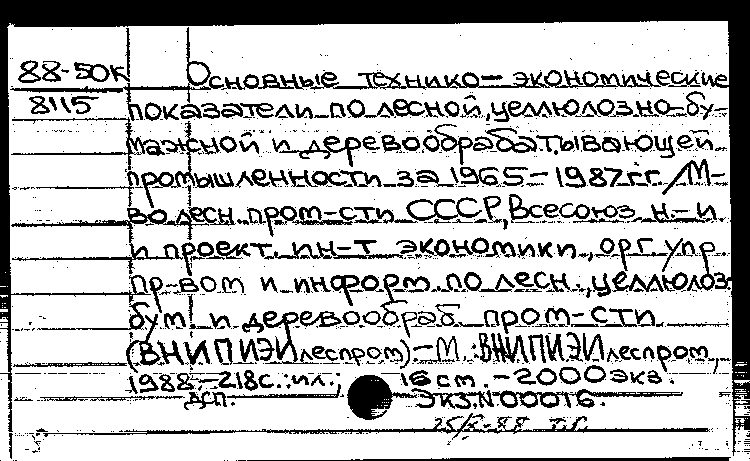 88-50к Основные технико-экономические
8115 показатели по лесной, целлюлозно-бу-
мажной и деревообрабатывающей
промышленности за 1965-1987гг. / М-
во лесн. пром-сти СССР, Всесоюз. н.-и.
и проект. ин-т экономики, орг. упр.
пр-вом и информ. по лесн., целлюлоз.
бум. и деревообраб. пром-сти
(ВНИПИЭИлеспром).-М.:ВНИПИЭИлеспром,
1988.-218с.:ил.; 16 см.-2000экз.
ДСП. Экз.N00016.
25/X-88